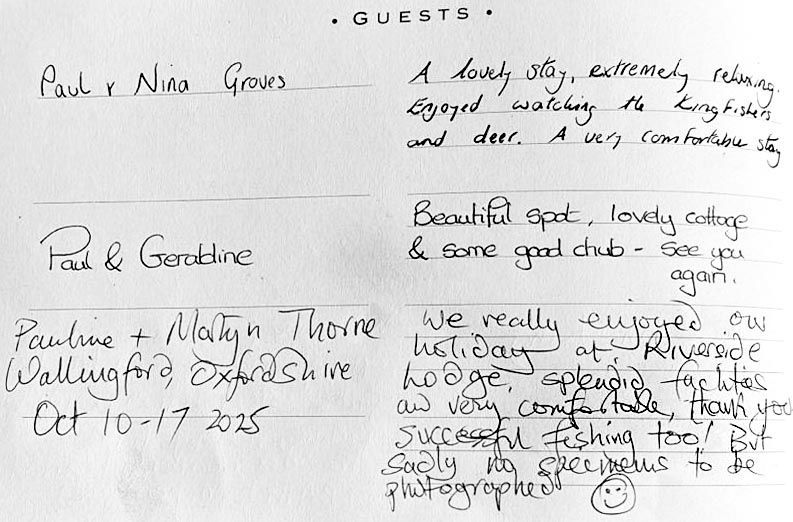 • GUESTS •
Paul + Nina Groves
A lovely stay, extremely relaxing.
Enjoyed watching the Kingfishers
and deer. A very comfortable stay
Paul & Geraldine
Beautiful spot, lovely cottage
& some good chub - see you
again.
Pauline + Martyn Thorne
Wallingford, Oxfordshire
Oct 10-17 2025
We really enjoyed our
holiday at Riverside
Lodge, splendid facilities
and very comfortable, thank you
successful fishing too! But
sadly no specimens to be
photographed